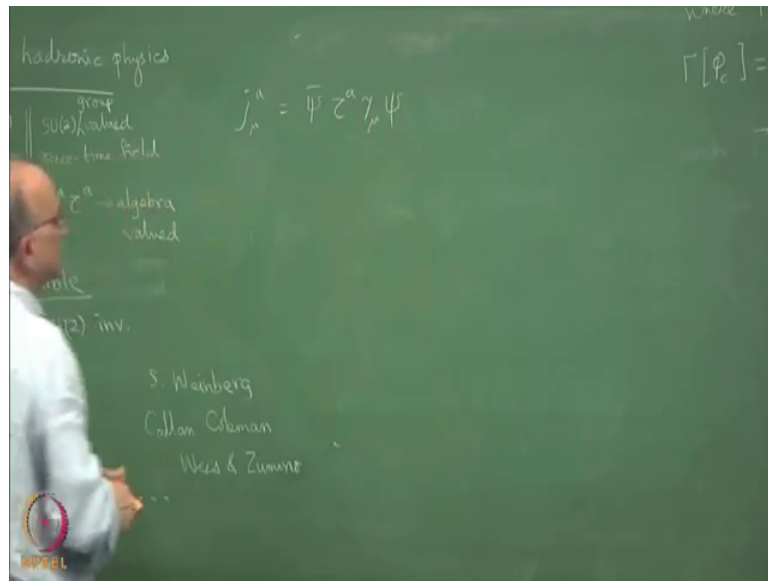 hadronic physics
group
SU(2) valued
space-time field
τᵃ → algebra
valued
SU(2) inv.
j_μ^a = ψ̄ τ^a γ_μ ψ
S. Weinberg
Callan Coleman
Wess & Zumino
...
Where
Γ[φ_c] =
NPTEL